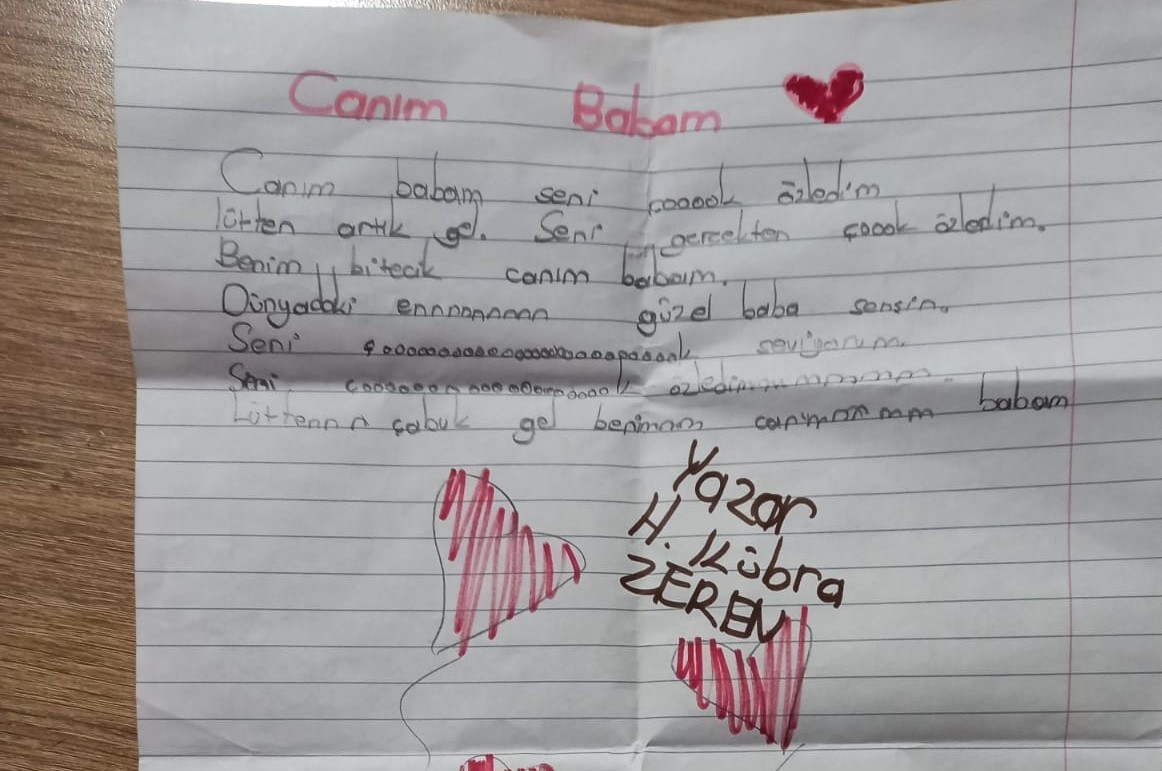 Canım Babam
Canım babam seni çooook özledim
lütfen artık gel. Seni gerçekten çoook özledim.
Benim bitecik canım babam.
Dünyadaki ennnnnnnnn güzel baba sensin.
Seni seviyorum.
Seni özledimmmmmmm.
Lütfennn çabuk gel benimmm canımmmmm babam
Yazar
H. Kübra
ZEREN